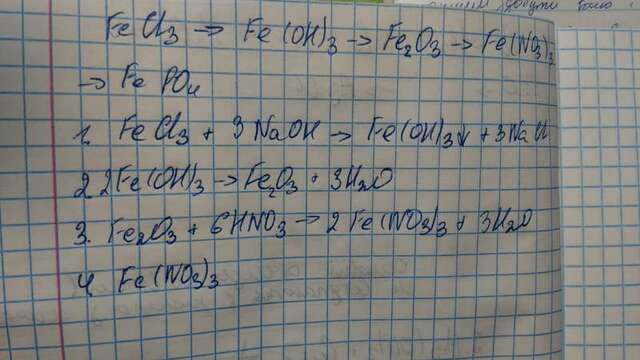 FeCl3 → Fe(OH)3 → Fe2O3 → Fe(NO3)3
→ FePO4
1. FeCl3 + 3NaOH → Fe(OH)3↓ + 3NaCl
2 2Fe(OH)3 → Fe2O3 + 3H2O
3. Fe2O3 + 6HNO3 → 2Fe(NO3)3 + 3H2O
4 Fe(NO3)3